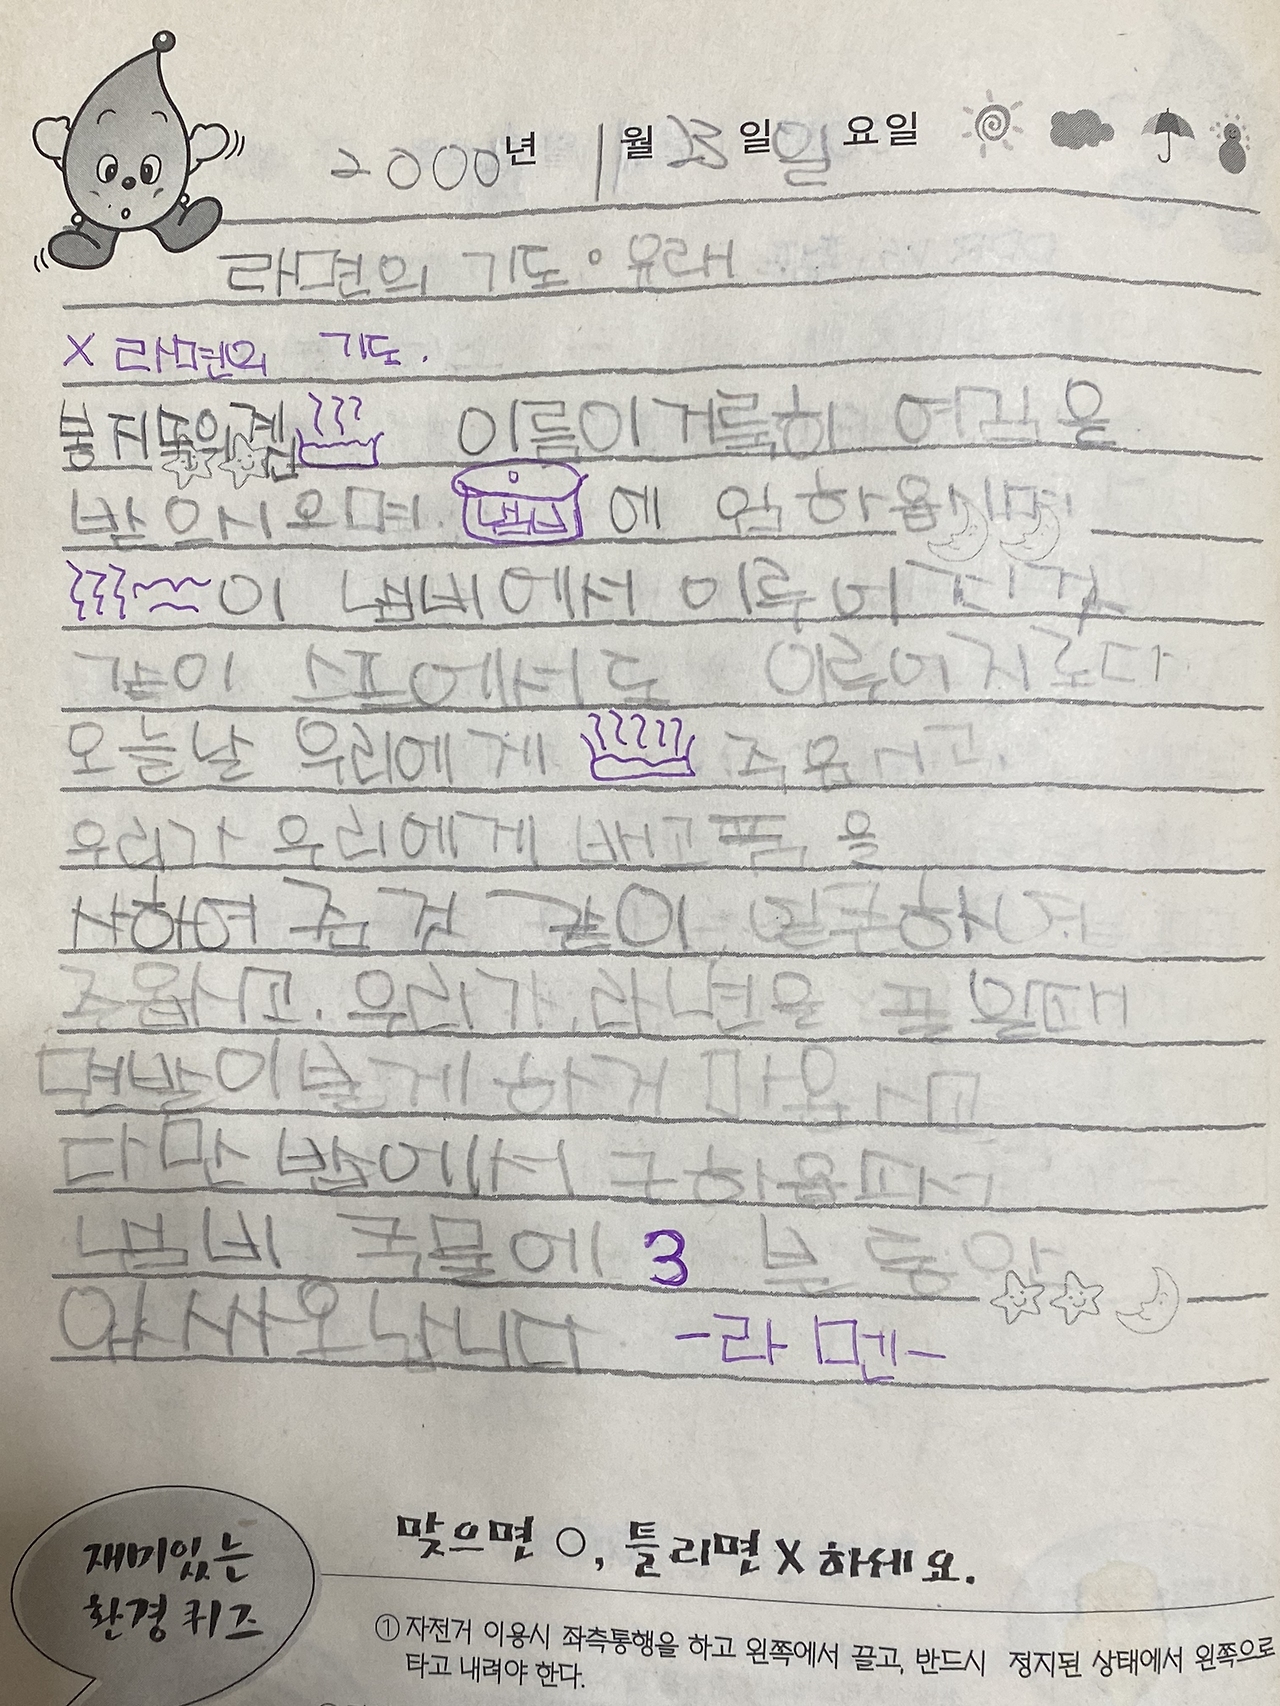 2000년 1월 23일 일요일
라면의 기도 · 유래
X 라면의 기도.
봉지 이름이 거룩히 여김을
받으시오며. 냄비 에 임하옵시면
이 냄비에서 이루어진것
같이 스프에서도 이루어지로다
오늘날 우리에게 주옵시고.
우리가 우리에게 배고픔을
사하여 준것 같이 일른하여
주옵시고. 우리가 라면을 끓일때
면발이불게 하거 마옵시고
다만 에서 구하옵고다
냄비 국물에 3분 동안
있사오닙니다 -라멘-
재미있는
환경 퀴즈
맞으면 ○, 틀리면 X 하세요.
① 자전거 이용시 좌측통행을 하고 왼쪽에서 끌고, 반드시 정지된 상태에서 왼쪽으로
타고 내려야 한다.